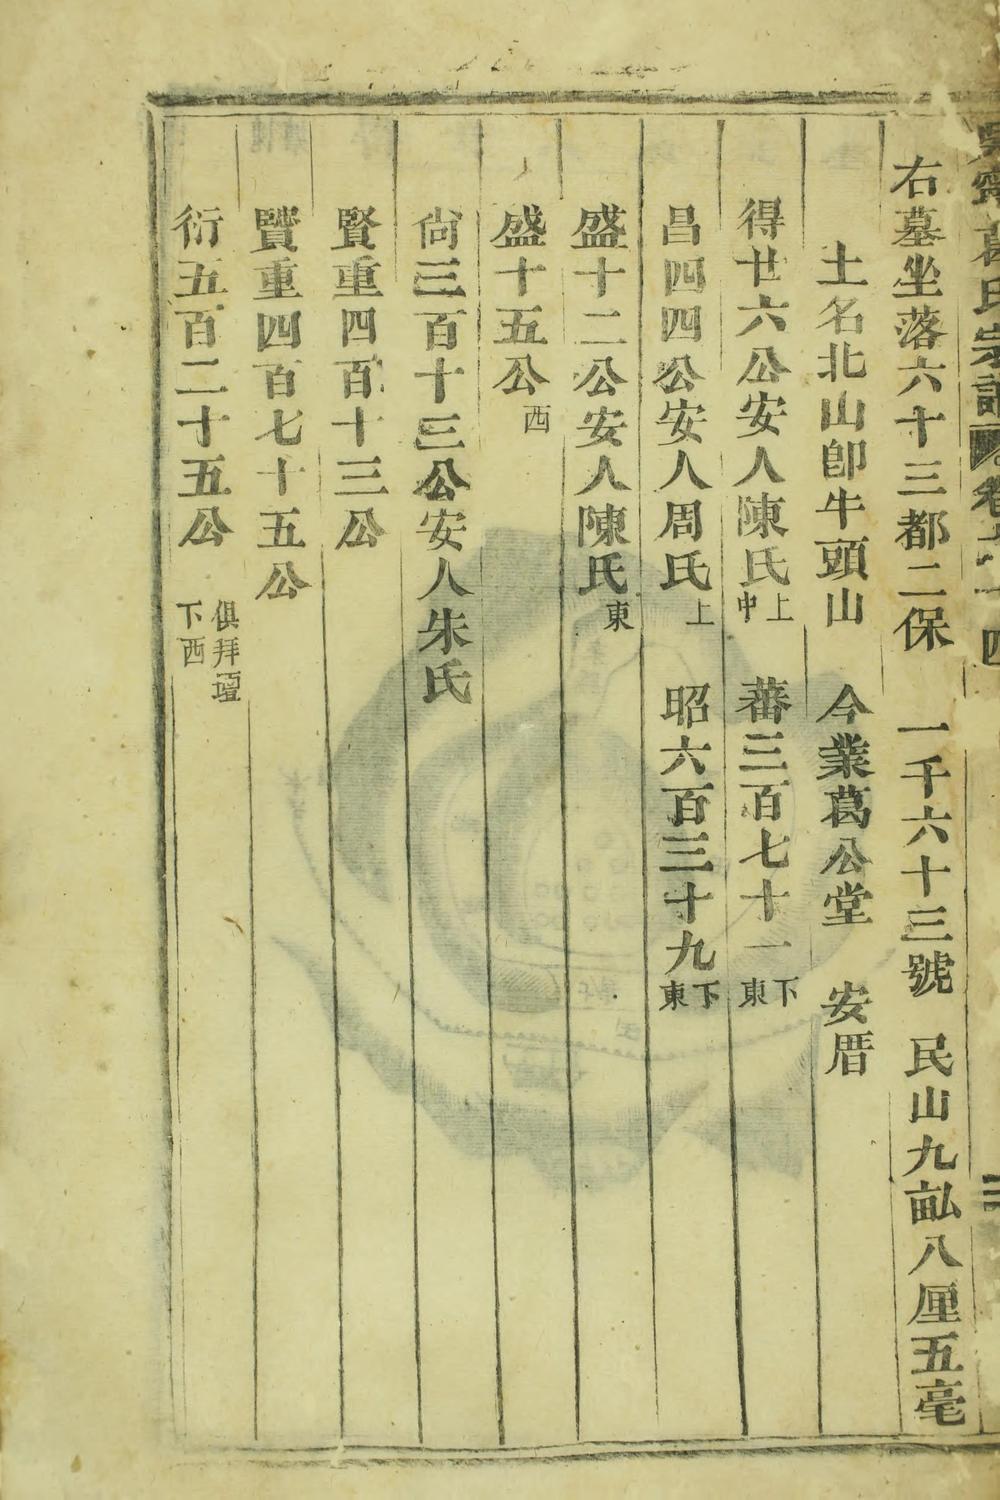 葛氏宗譜 卷 十四
右墓坐落六十三都二保 一千六十三號 民山九畝八厘五毫
土名北山卽牛頭山 今業葛公堂 安厝
得廿六公安人陳氏上中 蕃三百七十一下東
昌四四公安人周氏上 昭六百三十九下東
盛十二公安人陳氏東
盛十五公西
尙三百十三公安人朱氏
賢重四百十三公
贒重四百七十五公
衍五百二十五公 俱拜壇下西